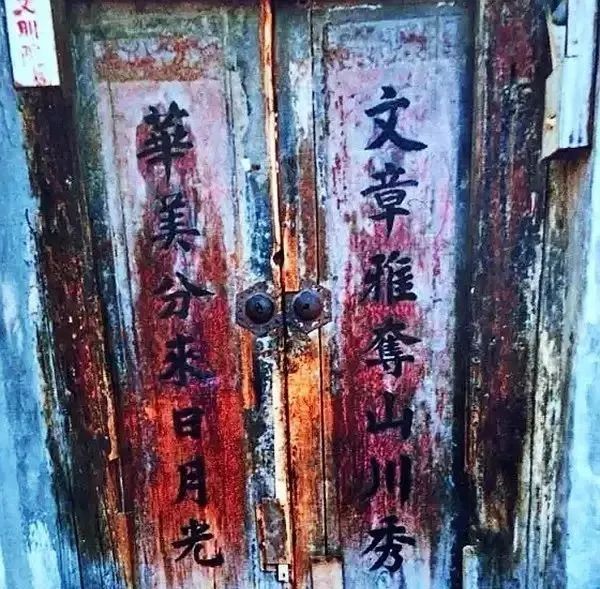 文章雅奪山川秀
華美分來日月光